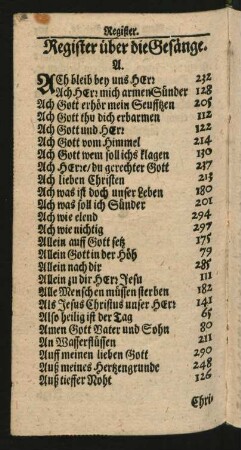 Register.
Register über die Gesänge.
A.
ACh bleib bey uns HErr 232
Ach HErr mich armen Sünder 128
Ach Gott erhör mein Seufftzen 205
Ach Gott thu dich erbarmen 112
Ach Gott und HErr 122
Ach Gott vom Himmel 214
Ach Gott wem soll ichs klagen 130
Ach HErre/du gerechter Gott 237
Ach lieben Christen 213
Ach was ist doch unser Leben 180
Ach was soll ich Sünder 201
Ach wie elend 294
Ach wie nichtig 297
Allein auff Gott setz 175
Allein Gott in der Höh 79
Allein nach dir 285
Allein zu dir HErr Jesu 111
Alle Menschen müssen sterben 182
Als Jesus Christus unser HErr 141
Also heilig ist der Tag 65
Amen Gott Vater und Sohn 80
An Wasserflüssen 211
Auff meinen lieben Gott 290
Auß meines Hertzengrunde 248
Auß tieffer Noht 126
Chri⸗